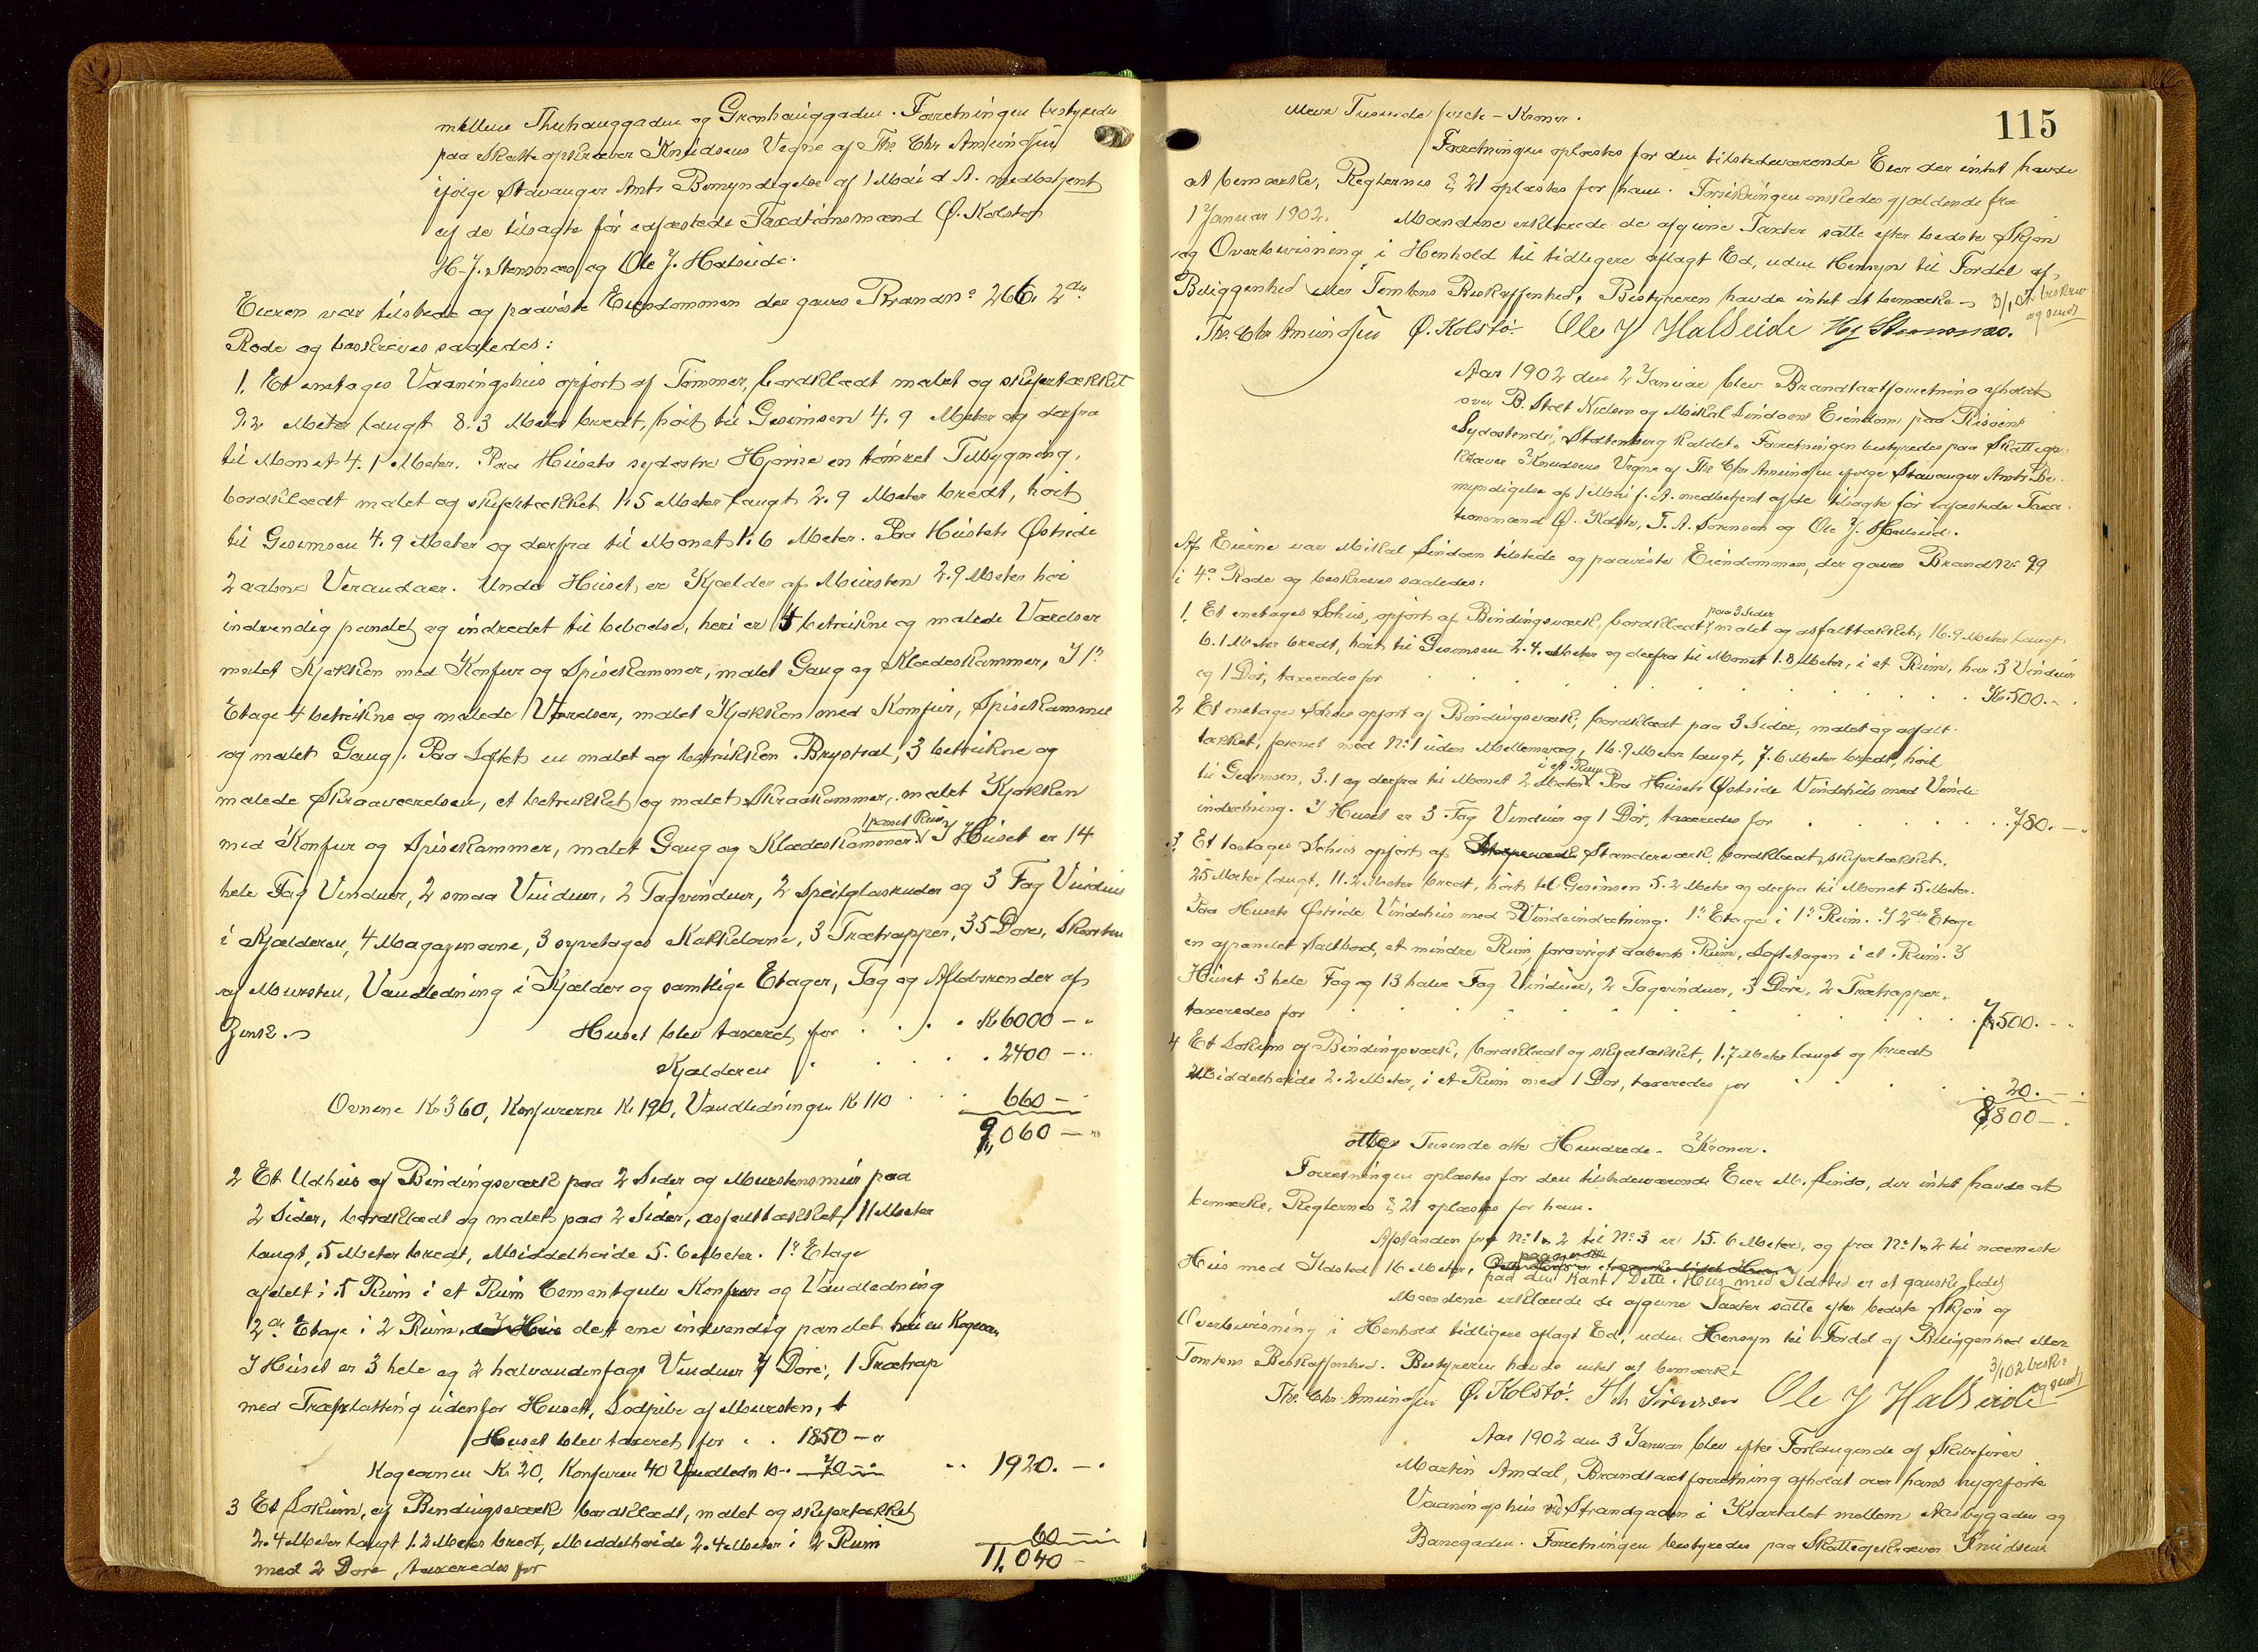 mellem Thuhauggaden og Grønhauggaden. Forretningen bestyredes
paa Skatteopkræver Knudsens Vegne af Ths. Chr Amundsen
ifølge Stavanger Amts Bemyndigelse af 1 Mai d. A. medbetjent
af de tilsagte før edfæstede Taxationsmænd Ø. Kolstø
H. J. Stensnæs og Ole J. Halseide.
Eieren var tilstede og paaviste Eiendommen der gaves Brandno 266, 2den
Rode og beskreves saaledes:
1. Et enetages Vaaningshus opført af Tømmer, bordklædt malet og skifertækket
9.2 Meter langt 8.3 Meter bredt, høit til Gesimsen 4.9 Meter og derfra
til Mønet 4.1 Meter. Paa Husets sydøstre Hjørne en tømret Tilbygning,
bordklædt malet og skifertækket 1.5 Meter langt 2.9 Meter bredt, høit
til Gesimsen 4.9 Meter og derfra til Mønet 1.6 Meter. Paa Husets Østside
2 aabne Verandaer. Under Huset er Kjælder af Mursten 2.9 Meter høi
indvendig panelet og indredet til beboelse, heri er 4 betrukne og malede Værelser
malet Kjøkken med Komfur og Spisekammer, malet Gang og Klædeskammer, I 1ste
Etage 4 betrukne og malede Værelser, malet Kjøkken med Komfur, Spisekammer
og malet Gang. Paa Loftet en malet og betrukken Brystsal, 3 betrukne og
malede Skraaværelser, et betrukket og malet Skraakammer, malet Kjøkken
1 panel Rum
med Komfur og Spisekammer, malet Gang og Klædeskammer √ I Huset er 14
hele Fag Vinduer, 2 smaa Vinduer, 2 Tagvinduer, 2 Speilglasruder og 3 Fag Vinduer
i Kjælderen, 4 Magazinovne, 3 syvetages Kakkelovne, 3 Trætrapper, 35 Døre, Skorsten
af Mursten, Vandledning i Kjælder og samtlige Etager, Tag og Afløbsrender af
Zink. Huset blev taxeret for . . . . K 6000 –
Kjælderen . . . . 2400 –
Ovnene Kr 360, Komfurerne Kr 190, Vandledningen Kr 110 . . . 660 –
9,060 –
2 Et Udhus af Bindingsværk paa 2 Sider og Murstensmur paa
2 Sider, bordklædt og malet paa 2 Sider, asfalttækket, 11 Meter
langt, 5 Meter bredt, Middelhøide 5.6 Meter. 1ste Etage
afdelt i 5 Rum i et Rum Cementgulv Komfur og Vandledning
2den Etage i 2 Rum, det ene indvendig panelet heri en Kogeovn
I Huset er 3 hele og 2 halvandenfags Vinduer 7 Døre, 1 Trætrap
med Træplatting udenfor Huset, Sodpibe af Mursten,
Huset blev taxeret for . . 1850 –
Kogeovnen Kr 20, Komfuren 40 Vandledn 10 – 70 – . . 1920. –
3 Et Lokum, af Bindingsværk bordklædt, malet og skifertækket
2.4 Meter langt 1.2 Meter bredt, Middelhøide 2.4 Meter i 2 Rum 60 –
med 2 Døre, taxeredes for 11,040 –
115
Tusinde førti – Kroner.
Forretningen oplæstes for den tilstedeværende Eier der intet havde
at bemærke, Reglernes § 21 oplæstes for ham. Forsikringen ønskedes gjældende fra
1 Januar 1902. Mændene erklærede de afgivne Taxter satte efter bedste Skjøn
og Overbevisning i Henhold til tidligere aflagt Ed, uden Hensyn til Fordel af
Beliggenhed eller Tomtens Beskaffenhed. Bestyreren havde intet at bemærke – 3/1 02 beskrev og sendt
Ths. Chr Amundsen Ø. Kolstø. Ole J Halseide HJ Stensnæs.
Aar 1902 den 2 Januar blev Brandtaxtforretning afholdt
over B. Stolt Nielsen og Mikal Lindøens Eiendom paa Risøens
Sydøstende, Stoltenberg kaldet. Forretningen bestyredes paa Skatteop-
kræver Knudsens Vegne af Ths Chr Amundsen ifølge Stavanger Amts Be-
myndigelse af 1 Mai f. A. medbetjent af de tilsagte før edfæstede Taxa-
tionsmænd Ø. Kolstø, T. A. Sørensen og Ole J. Halseid.
Af Eierne var Mikal Lindøen tilstede og paaviste Eiendommen, der gaves Brand No 99
i 4de Rode og beskreves saaledes:
paa 3 Sider
1. Et enetages Søhus, opført af Bindingsværk, bordklædt √ malet og asfalttækket, 16.9 Meter langt
6.1 Meter bredt, høit til Gesimsen 2.4 Meter og derfra til Mønet 1.8 Meter, i et Rum, har 3 Vinduer
og 1 Dør, taxeredes for . . . . Kr. 500. –
2 Et enetages Søhus opført af Bindingsværk, bordklædt paa 3 Sider, malet og asfalt-
tækket, forenet med No 1 uden Mellemvæg, 16.9 Meter langt, 7.6 Meter bredt, høit
i et Rum
til Gesimsen, 3.1 og derfra til Mønet 2 Meter √ Paa Husets Østside Vindehus med Vinde-
indretning. I Huset er 3 Fag Vinduer og 1 Dør, taxeredes for . . . . 780. –
3. Et toetages Søhus opført af Stenderværk, bordklædt, skifertækket,
25 Meter langt, 11.2 Meter bredt, høit til Gesimsen 5.2 Meter og derfra til Mønet 5 Meter.
Paa Husets Østside Vindehus med Vindeindretning. 1ste Etage i 1 Rum. I 2den Etage
en afpanelet Saltbod, et mindre Rum forøvrigt aabent Rum, Loftetagen i et Rum. I
Huset 3 hele Fag og 13 halve Fag Vinduer, 2 Tagvinduer, 3 Døre, 2 Trætrapper.
taxeredes for . . . . 7,500. –
4 Et Lokum af Bindingsværk, bordklædt og skifertækket, 1.7 Meter langt og bredt
Middelhøide 2.2 Meter, i et Rum med 1 Dør, taxeredes for . . . . 20. –
8,800 –
otte Tusinde otte Hundrede – Kroner.
Forretningen oplæstes for den tilstedeværende Eier M. Lindø, der intet havde at
bemærke, Reglernes § 21 oplæstes for ham.
Afstanden fra No 1 & 2 til No 3 er 15.6 Meter, og fra No 1 & 2 til nærmeste
Hus med Ildsted 16 Meter,
paa den Kant. Dette Hus med Ildsted er et ganske lidet
Mændene erklærede de afgivne Taxter satte efter bedste Skjøn og
Overbevisning i Henhold tidligere aflagt Ed, uden Hensyn til Fordel af Beliggenhed eller
Tomtens Beskaffenhed. Bestyreren havde intet at bemærke – 3/1 02 besk. og sendt
Ths. Chr Amundsen Ø. Kolstø. Sørensen Ole J Halseide
Aar 1902 den 3 Januar blev efter Forlangende af Skibsfører
Martin Amdal, Brandtaxtforretning afholdt over hans nyopførte
Vaaningshus ved Strandgaden i Kvartalet mellem Aasbygaden og
Banegaden. Forretningen bestyredes paa Skatteopkræver Knudsens